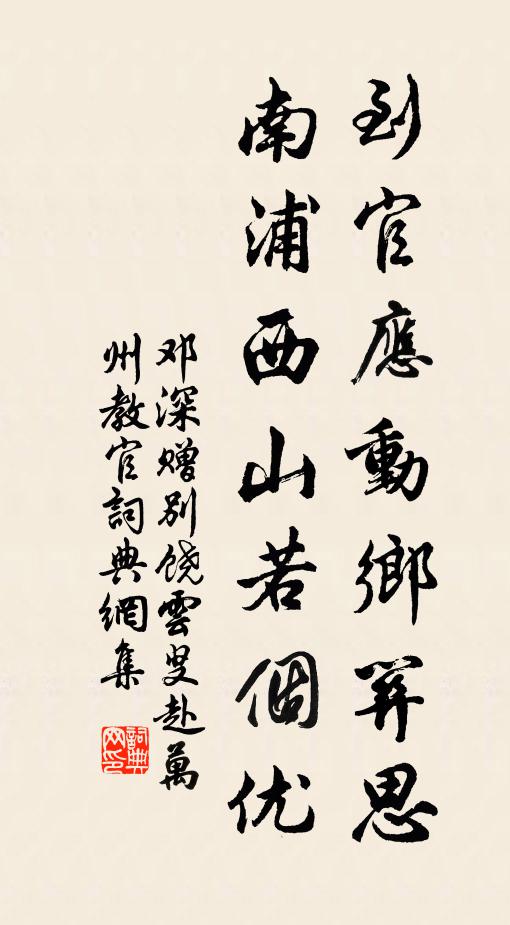 到官應動鄉關思
南浦西山若個优
邓深赠别饶雲叟赴萬
州教官詞典網集
詞典
网印